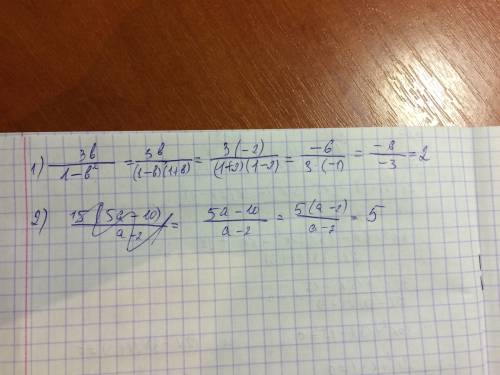 1) 3b/(1-b²) = 3b/((1-b)(1+b)) = 3(-2)/((1+2)(1-2)) = -6/(3(-1)) = -6/-3 = 2
2) (5a-10)/(a-2) = (5a-10)/(a-2) = 5(a-2)/(a-2) = 5